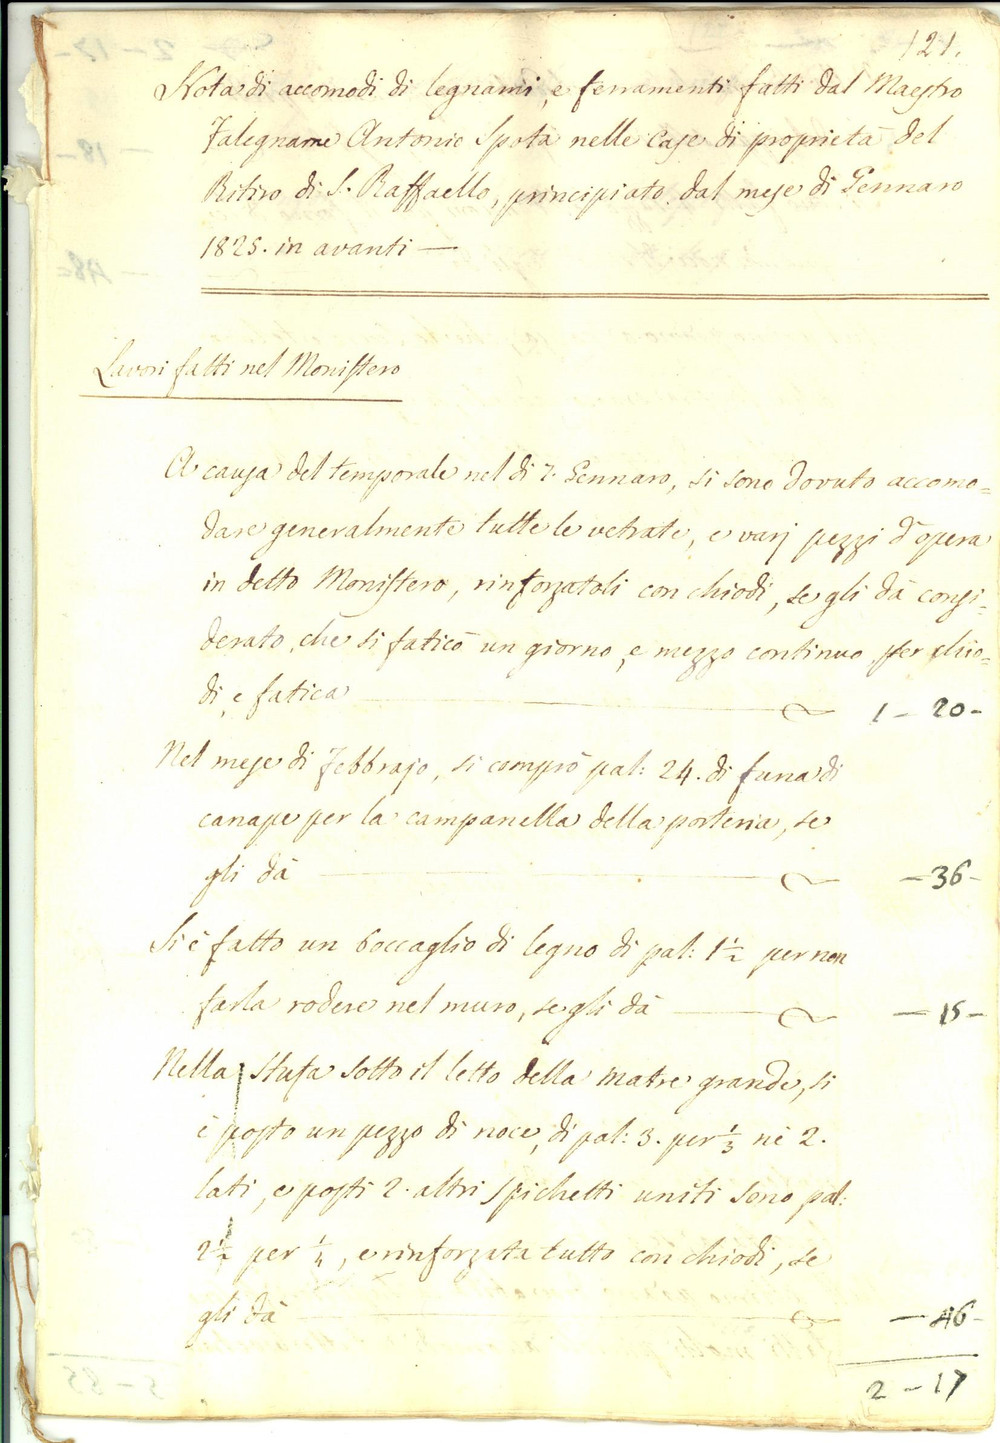 121.
Nota di accomodi di legnami, e ferramenti fatti dal Maestro
Falegname Antonio Spota nelle Case di proprietà del
Ritiro di S. Raffaello, principiato dal mese di Gennaro
1825. in avanti —
Lavori fatti nel Monistero
A causa del temporale nel dì 7. Gennaro, si sono dovuto accomo=
dare generalmente tutte le vetrate, e varj pezzi d'opera
in detto Monistero, rinforzatoli con chiodi, se gli dà consi=
derato, che si faticò un giorno, e mezzo continuo per chio=
di, e fatica — 1 – 20 –
Nel mese di Febbrajo, si comprò pal: 24. di funa di
canape per la campanella della porteria, se
gli dà — – 36 –
Si è fatto un boccaglio di legno di pal: 1½ per non
farla rodere nel muro, se gli dà — – 15 –
Nella stufa sotto il letto della Matre grande, si
è posto un pezzo di noce, di pal: 3. per ⅓ nè 2.
lati, e posti 2. altri spichetti uniti sono pal:
2½ per ¼, e rinforzata tutto con chiodi, se
gli dà — – 46 –
2 – 17